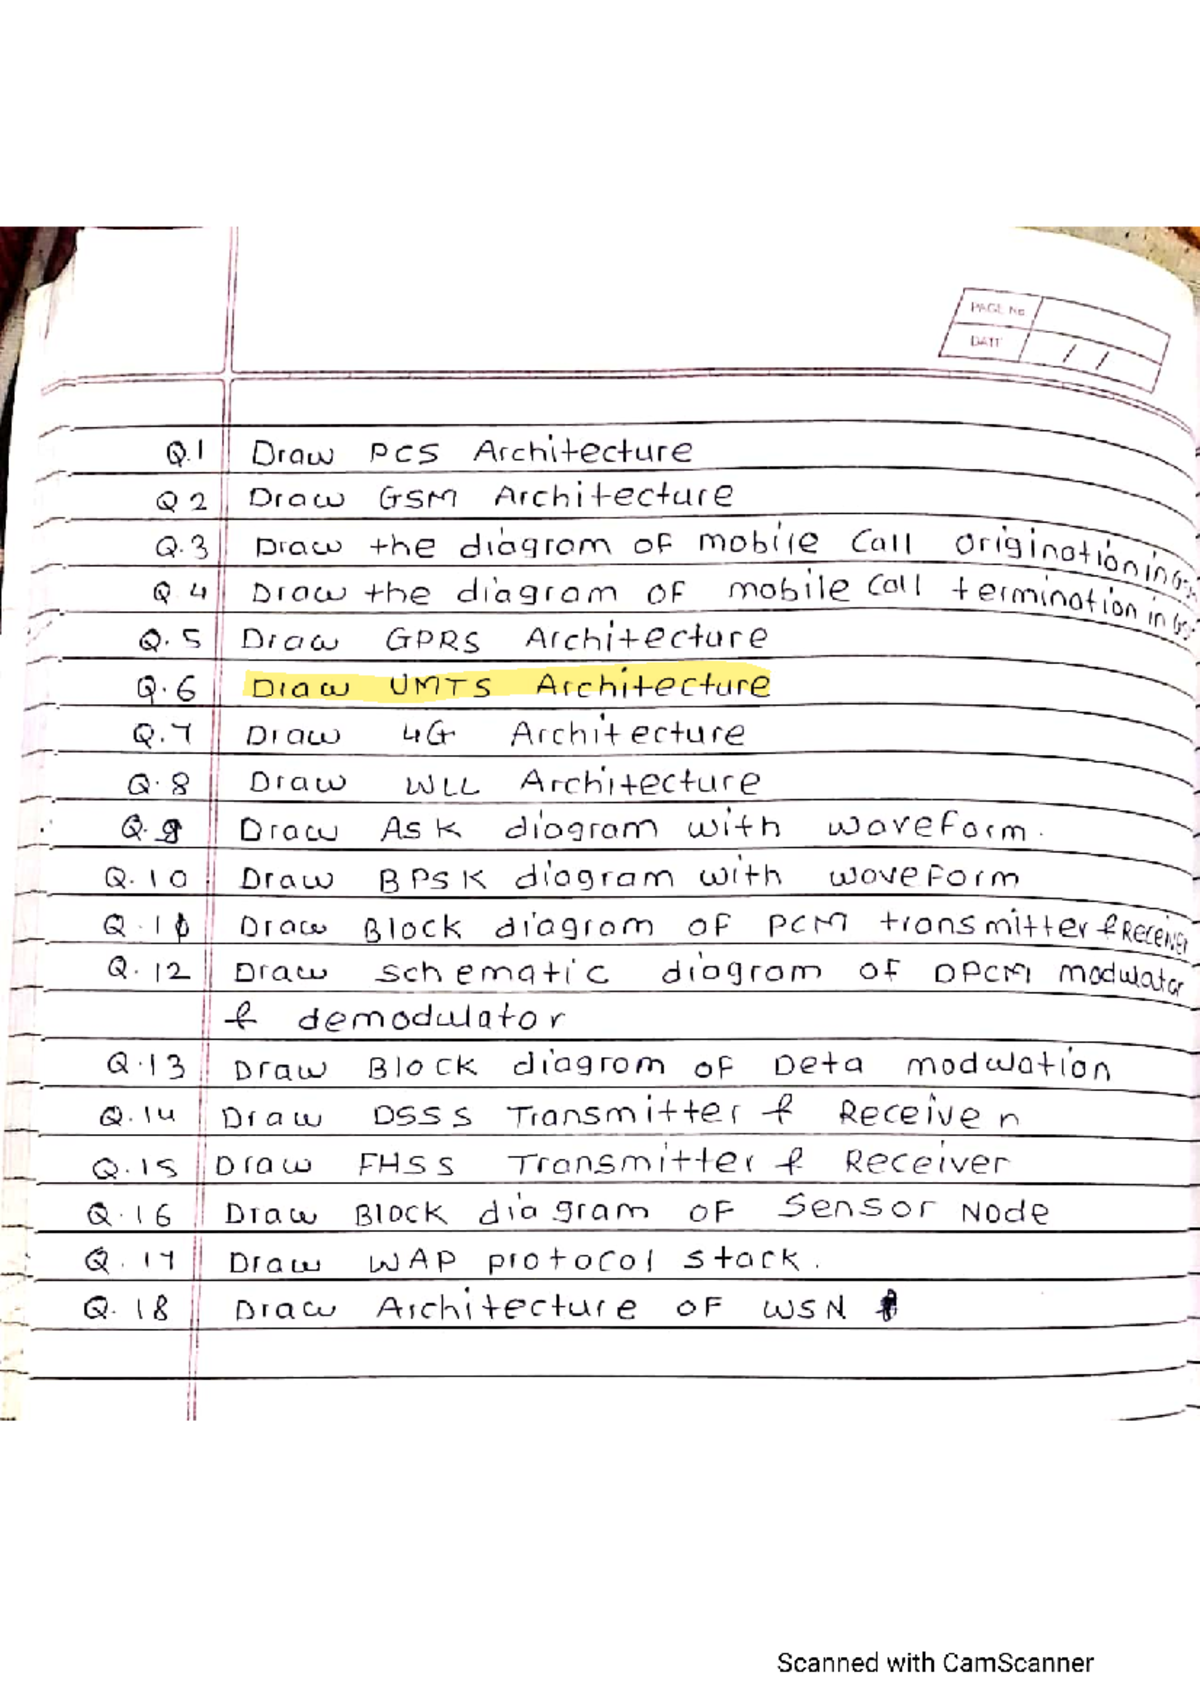 PAGE No
DATE / /
Q.1 Draw PCS Architecture
Q 2 Draw GSM Architecture
Q.3 Draw the diagram of mobile Call origination in
Q.4 Draw the diagram of mobile Call termination in
Q.5 Draw GPRS Architecture
Q.6 Draw UMTS Architecture
Q.7 Draw 4G Architecture
Q.8 Draw WLL Architecture
Q.9 Draw ASK diagram with waveform.
Q.10 Draw BPSK diagram with waveform
Q.11 Draw Block diagram of PCM transmitter & Receiver
Q.12 Draw schematic diagram of DPCM modulator
& demodulator
Q.13 Draw Block diagram of Deta modulation
Q.14 Draw DSSS Transmitter & Receiver
Q.15 Draw FHSS Transmitter & Receiver
Q.16 Draw Block diagram of Sensor Node
Q.17 Draw WAP protocol stack.
Q.18 Draw Architecture of WSN
Scanned with CamScanner